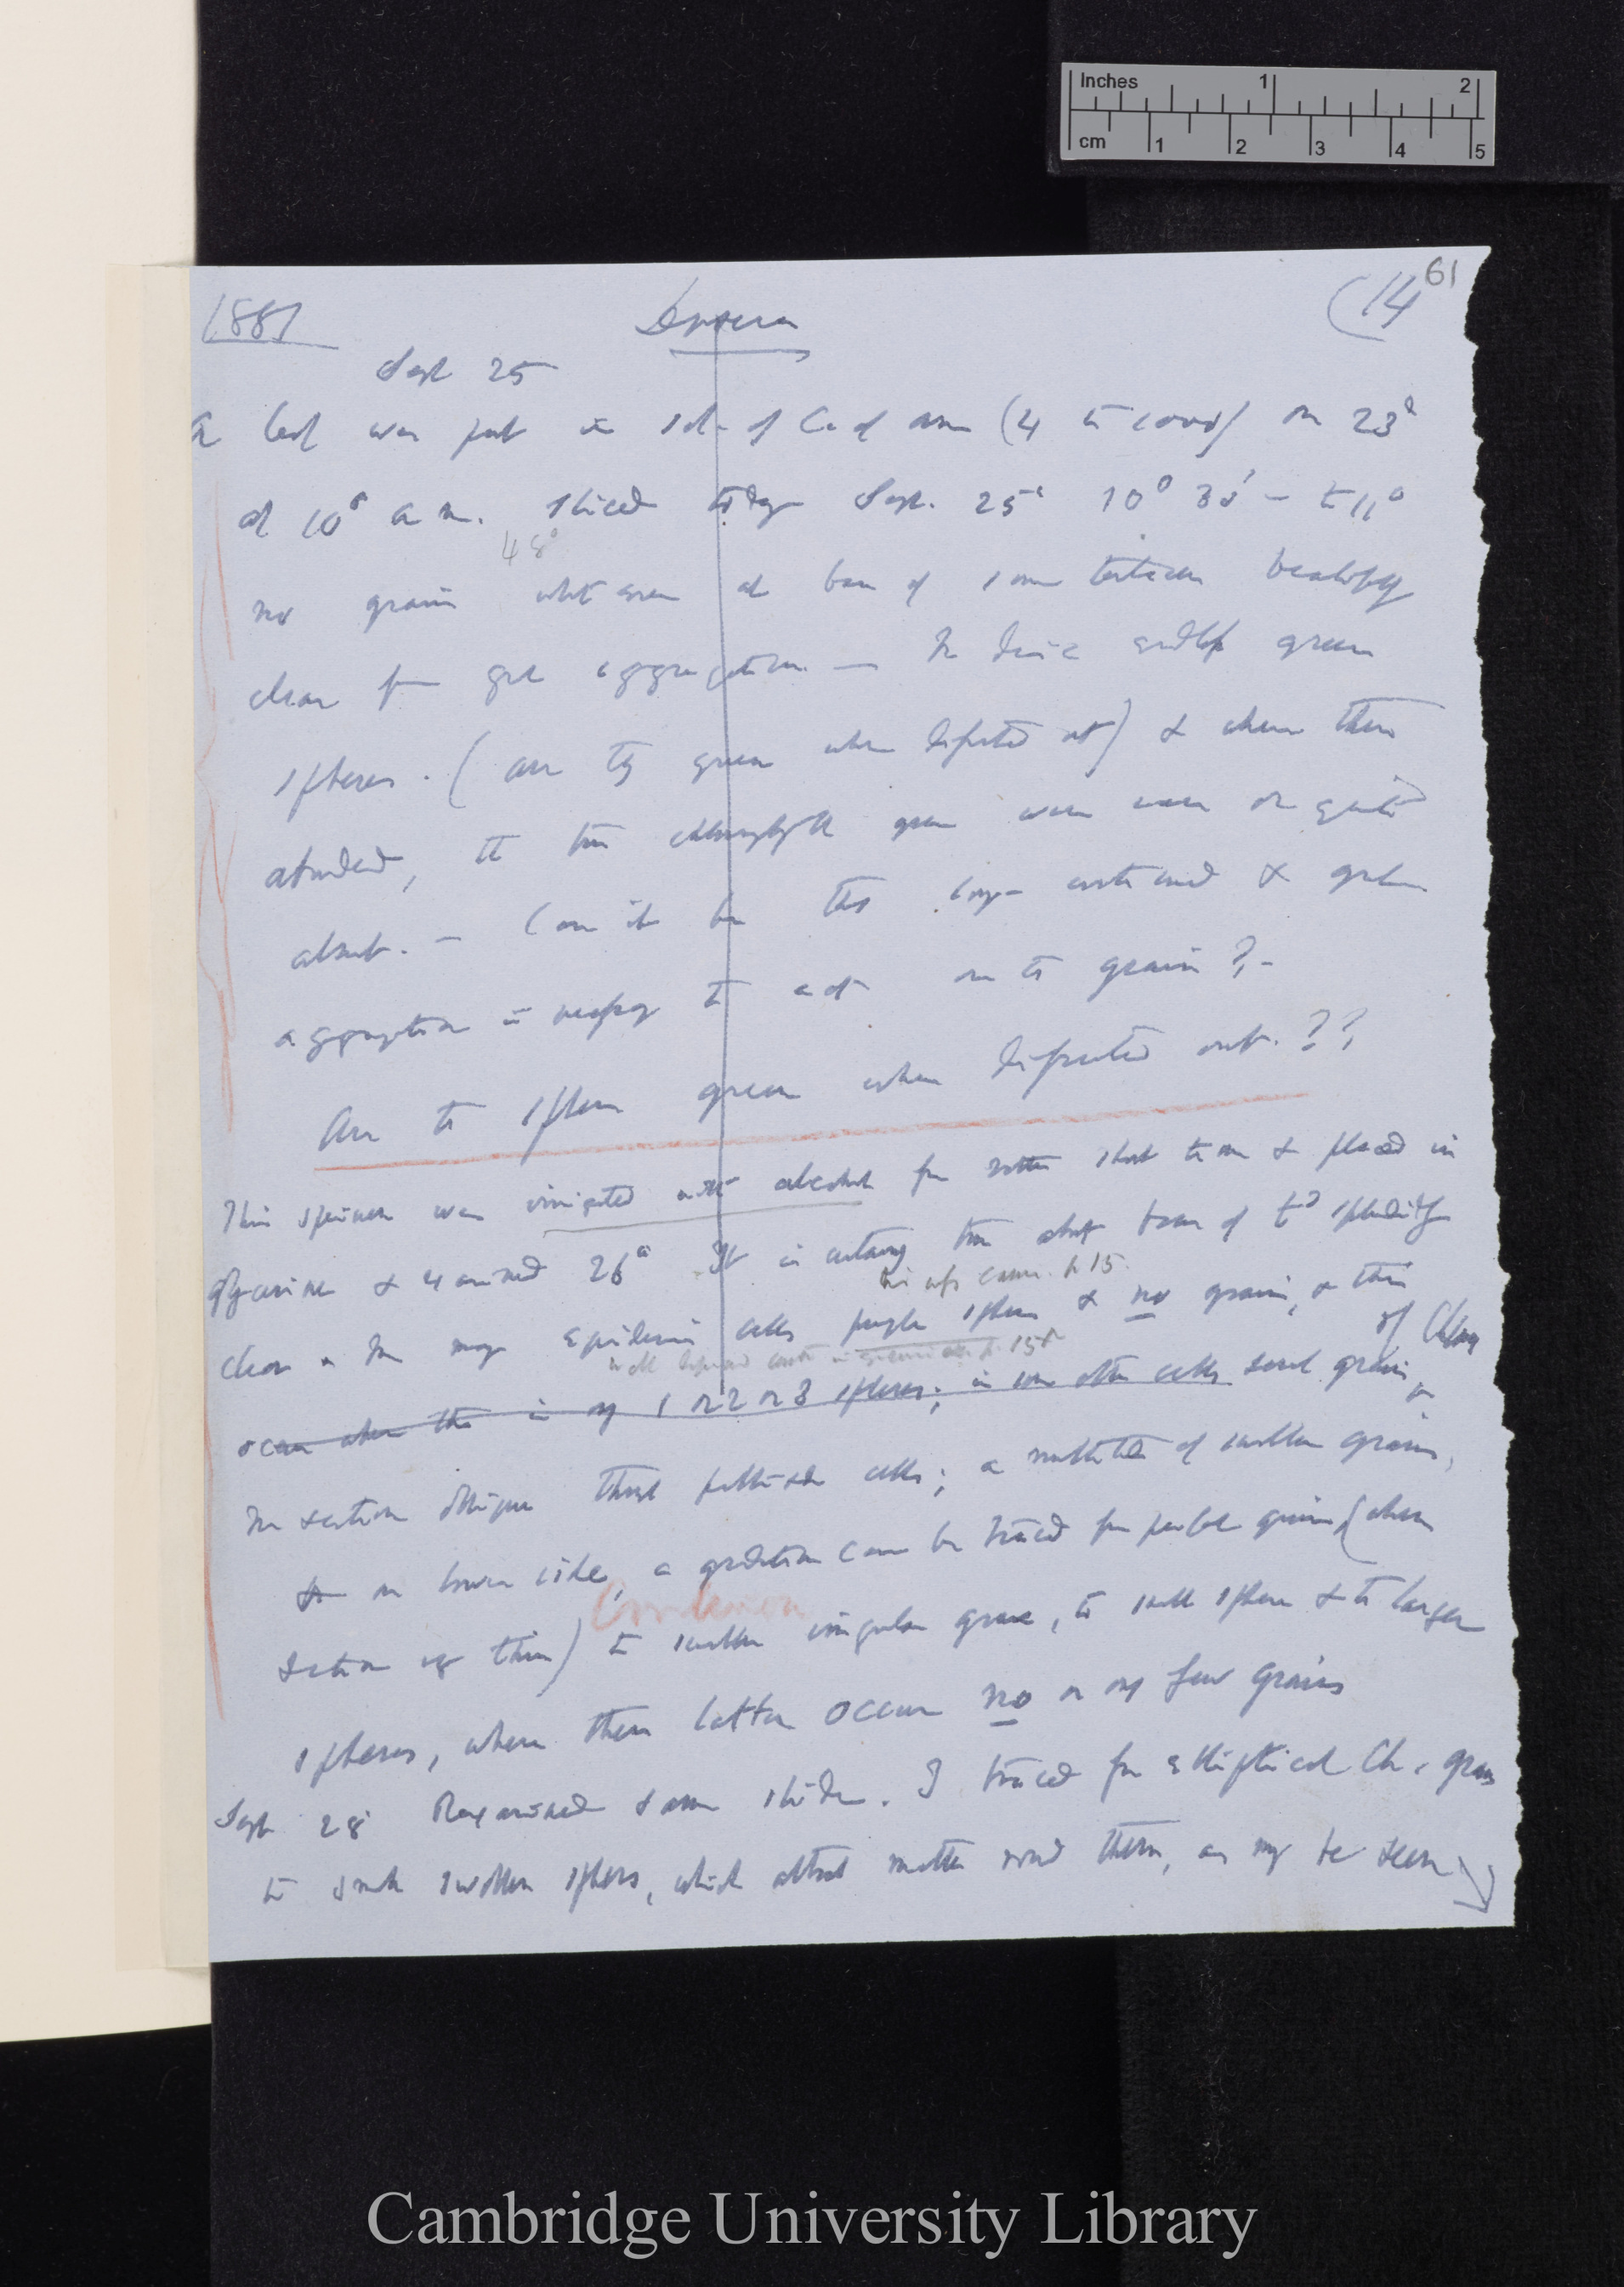 Inches 1 2
cm 1 2 3 4 5
61
1881 Drosera (14
Sept 25
A leaf was put in sol of C. of Amm (4 to 1000) on 23d
at 10° a.m. sliced to-day Sept. 25th 10° 30' – to 11°
48°
no grains whatever at base of some tentacles beautifully
clear from great aggregation — In disc green
spheres. (are they green when dissected out) & where these
abounded, the true chlorophyll grains were rare or quite
absent. — Can it be that long-continued & great
aggregation is necessary to act on the grains?, –
Are the spheres green when dissected out. ??
This specimen was irrigated with alcohol for rather short time & placed in
glycerine & examined 26th It is certainly true that base of splendidly
p. 15.
clear & In many epidermic cells purple spheres & no grains, or this
15
of Chlor
occurs when there is only 1 or 2 or 3 spheres; in some other cells several grains
In section oblique through cells; a multitude of smaller grains,
on lower side, a gradation can be traced from perfect grains (where
section is thin) to smaller irregular grains, to small spheres & to larger
spheres, where these latter occur no or only few grains
Sept 28 Reexamined same slide. I traced from elliptical Ch. grains
to small swollen spheres, which attract matter round them, as may be seen
Cambridge University Library